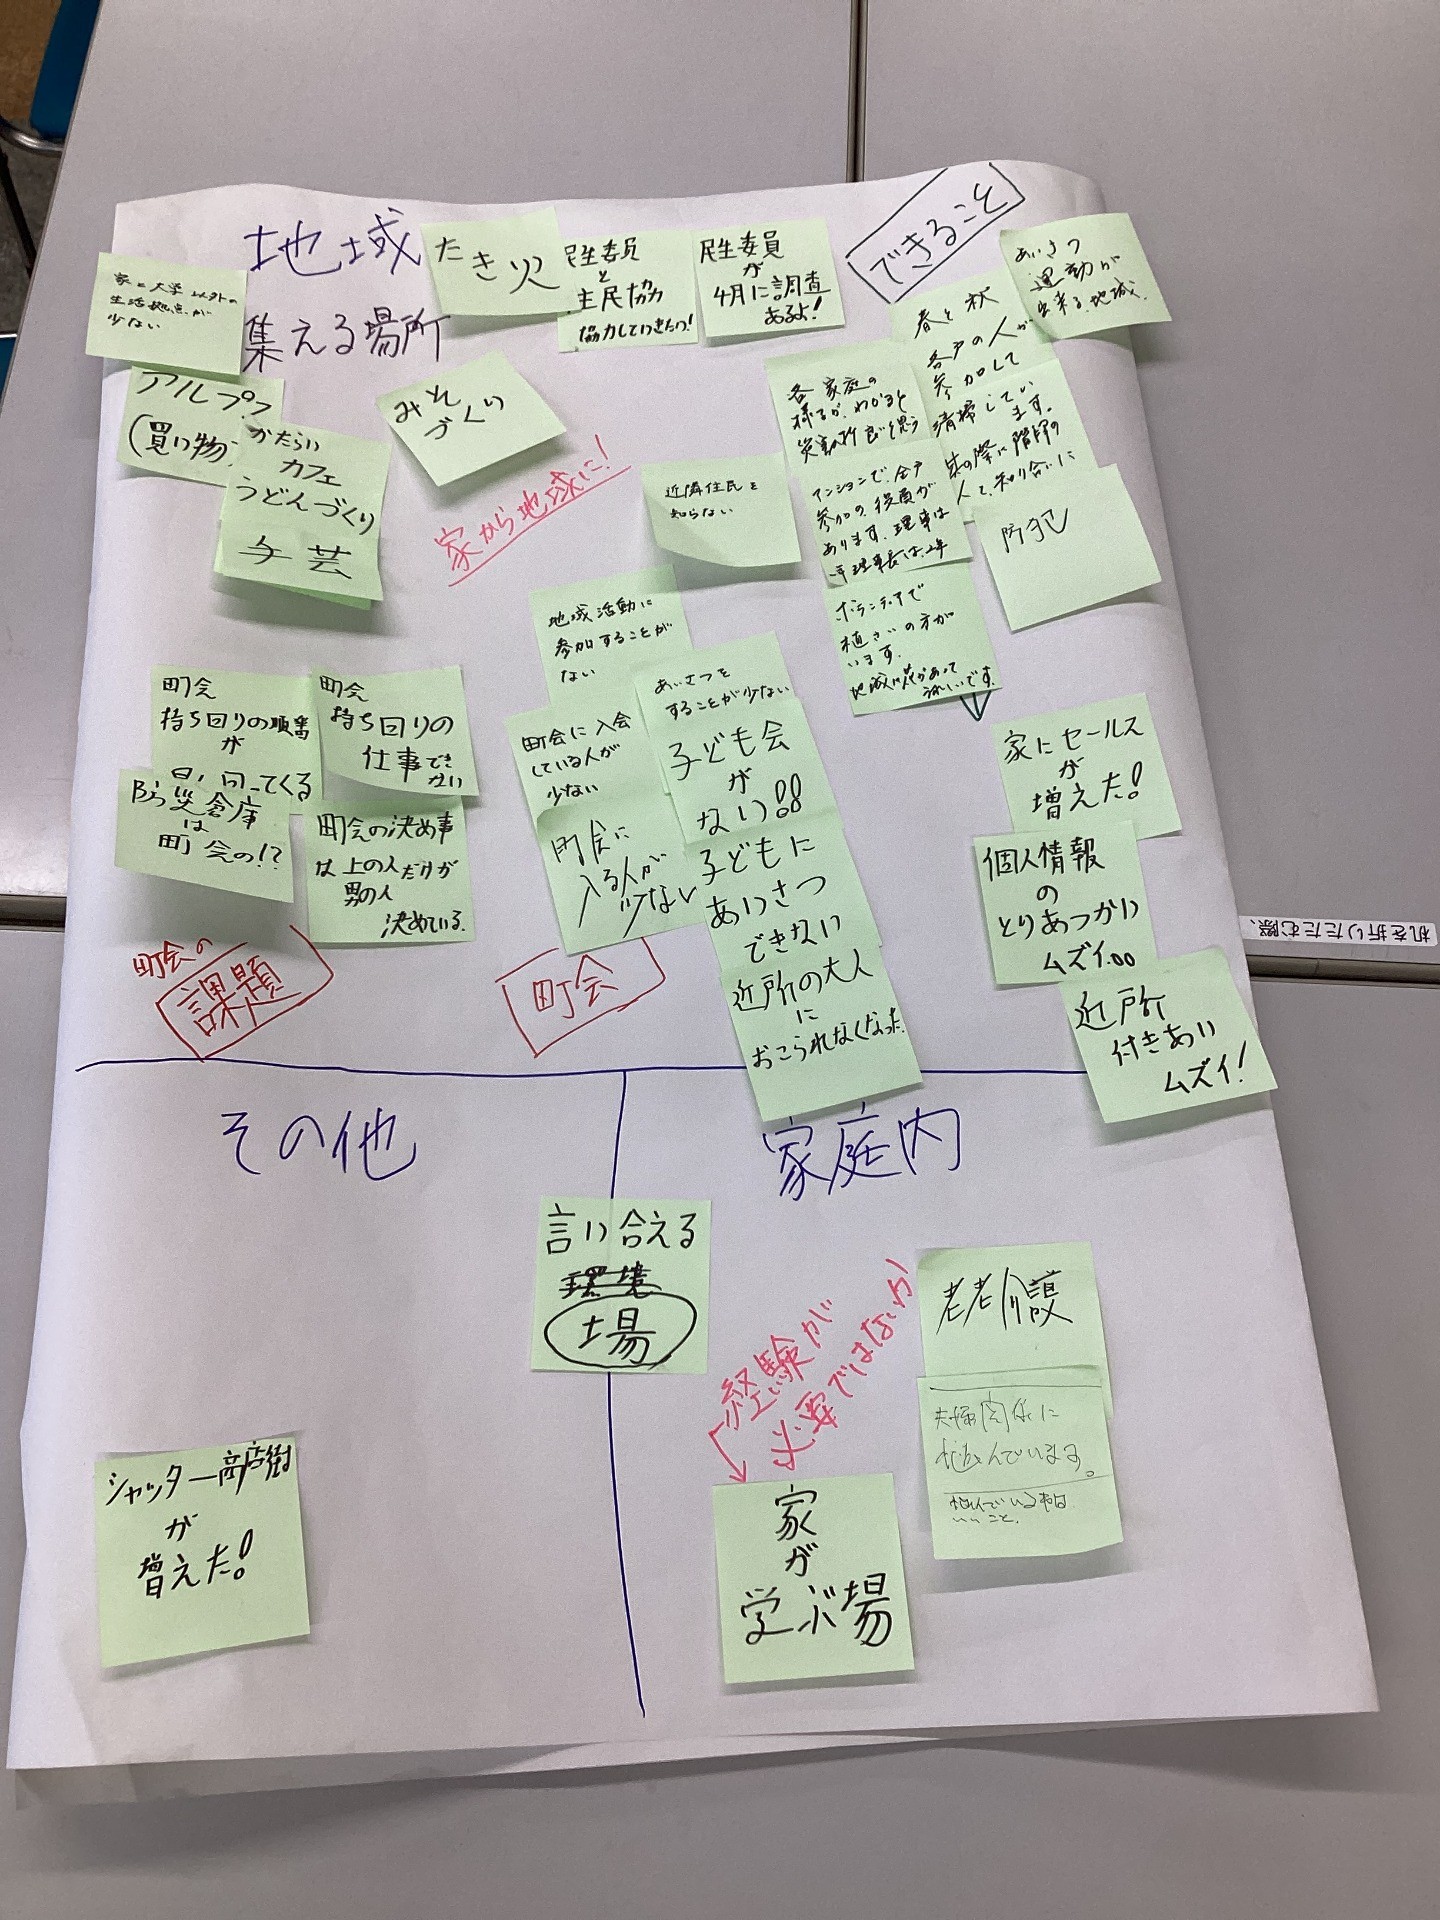 地域
集える場所
家と大学以外の
生活拠点が
少ない
アルプス
(買い物
かたらい
カフェ
うどんづくり
手芸
たき火
みそ
づくり
民生委員
と
主民協
協力していきたい!
民生委員
が
4月に調査
あるよ!
できること
あいさつ
運動が
出来る地域.
春と秋
各戸の人が
参加して
清掃してい
ます。
の際に階段の
人と知り合いに
防犯
各家庭の
様子が、わかると
災害の所良と思う
マンションで、全戸
参加の、役員が
あります。理事は
一年理事長は、2年
ボランティアで
植さいの方が
います。
地域に花があって
うれしいです。
家から地域に!
近隣住民を
知らない
地域活動に
参加することが
ない
町会に入会
している人が
少ない
町会に
入る人が
少ない
町会
あいさつを
することが少ない
子ども会
が
ない!!
子どもに
あいさつ
できない
近所の大人
に
おこられなくなった.
町会
持ち回りの順番
が
回ってくる
町会
持ち回りの
仕事でき
ない
防災倉庫
は
町会の!?
町会の決め事
は上の人だけが
男の人
決めている.
町会の
課題
家にセールス
が
増えた!
個人情報
の
とりあつかい
ムズイ。。
近所
付きあい
ムズイ!
机を折りたたむ際、
その他
シャッター商店街
が
増えた!
言い合える
環境
場
家庭内
経験が
必要ではないか
家
が
学ぶ場
老老介護
夫婦関係に
悩んでいます。
悩んでいる事は
いいこと.